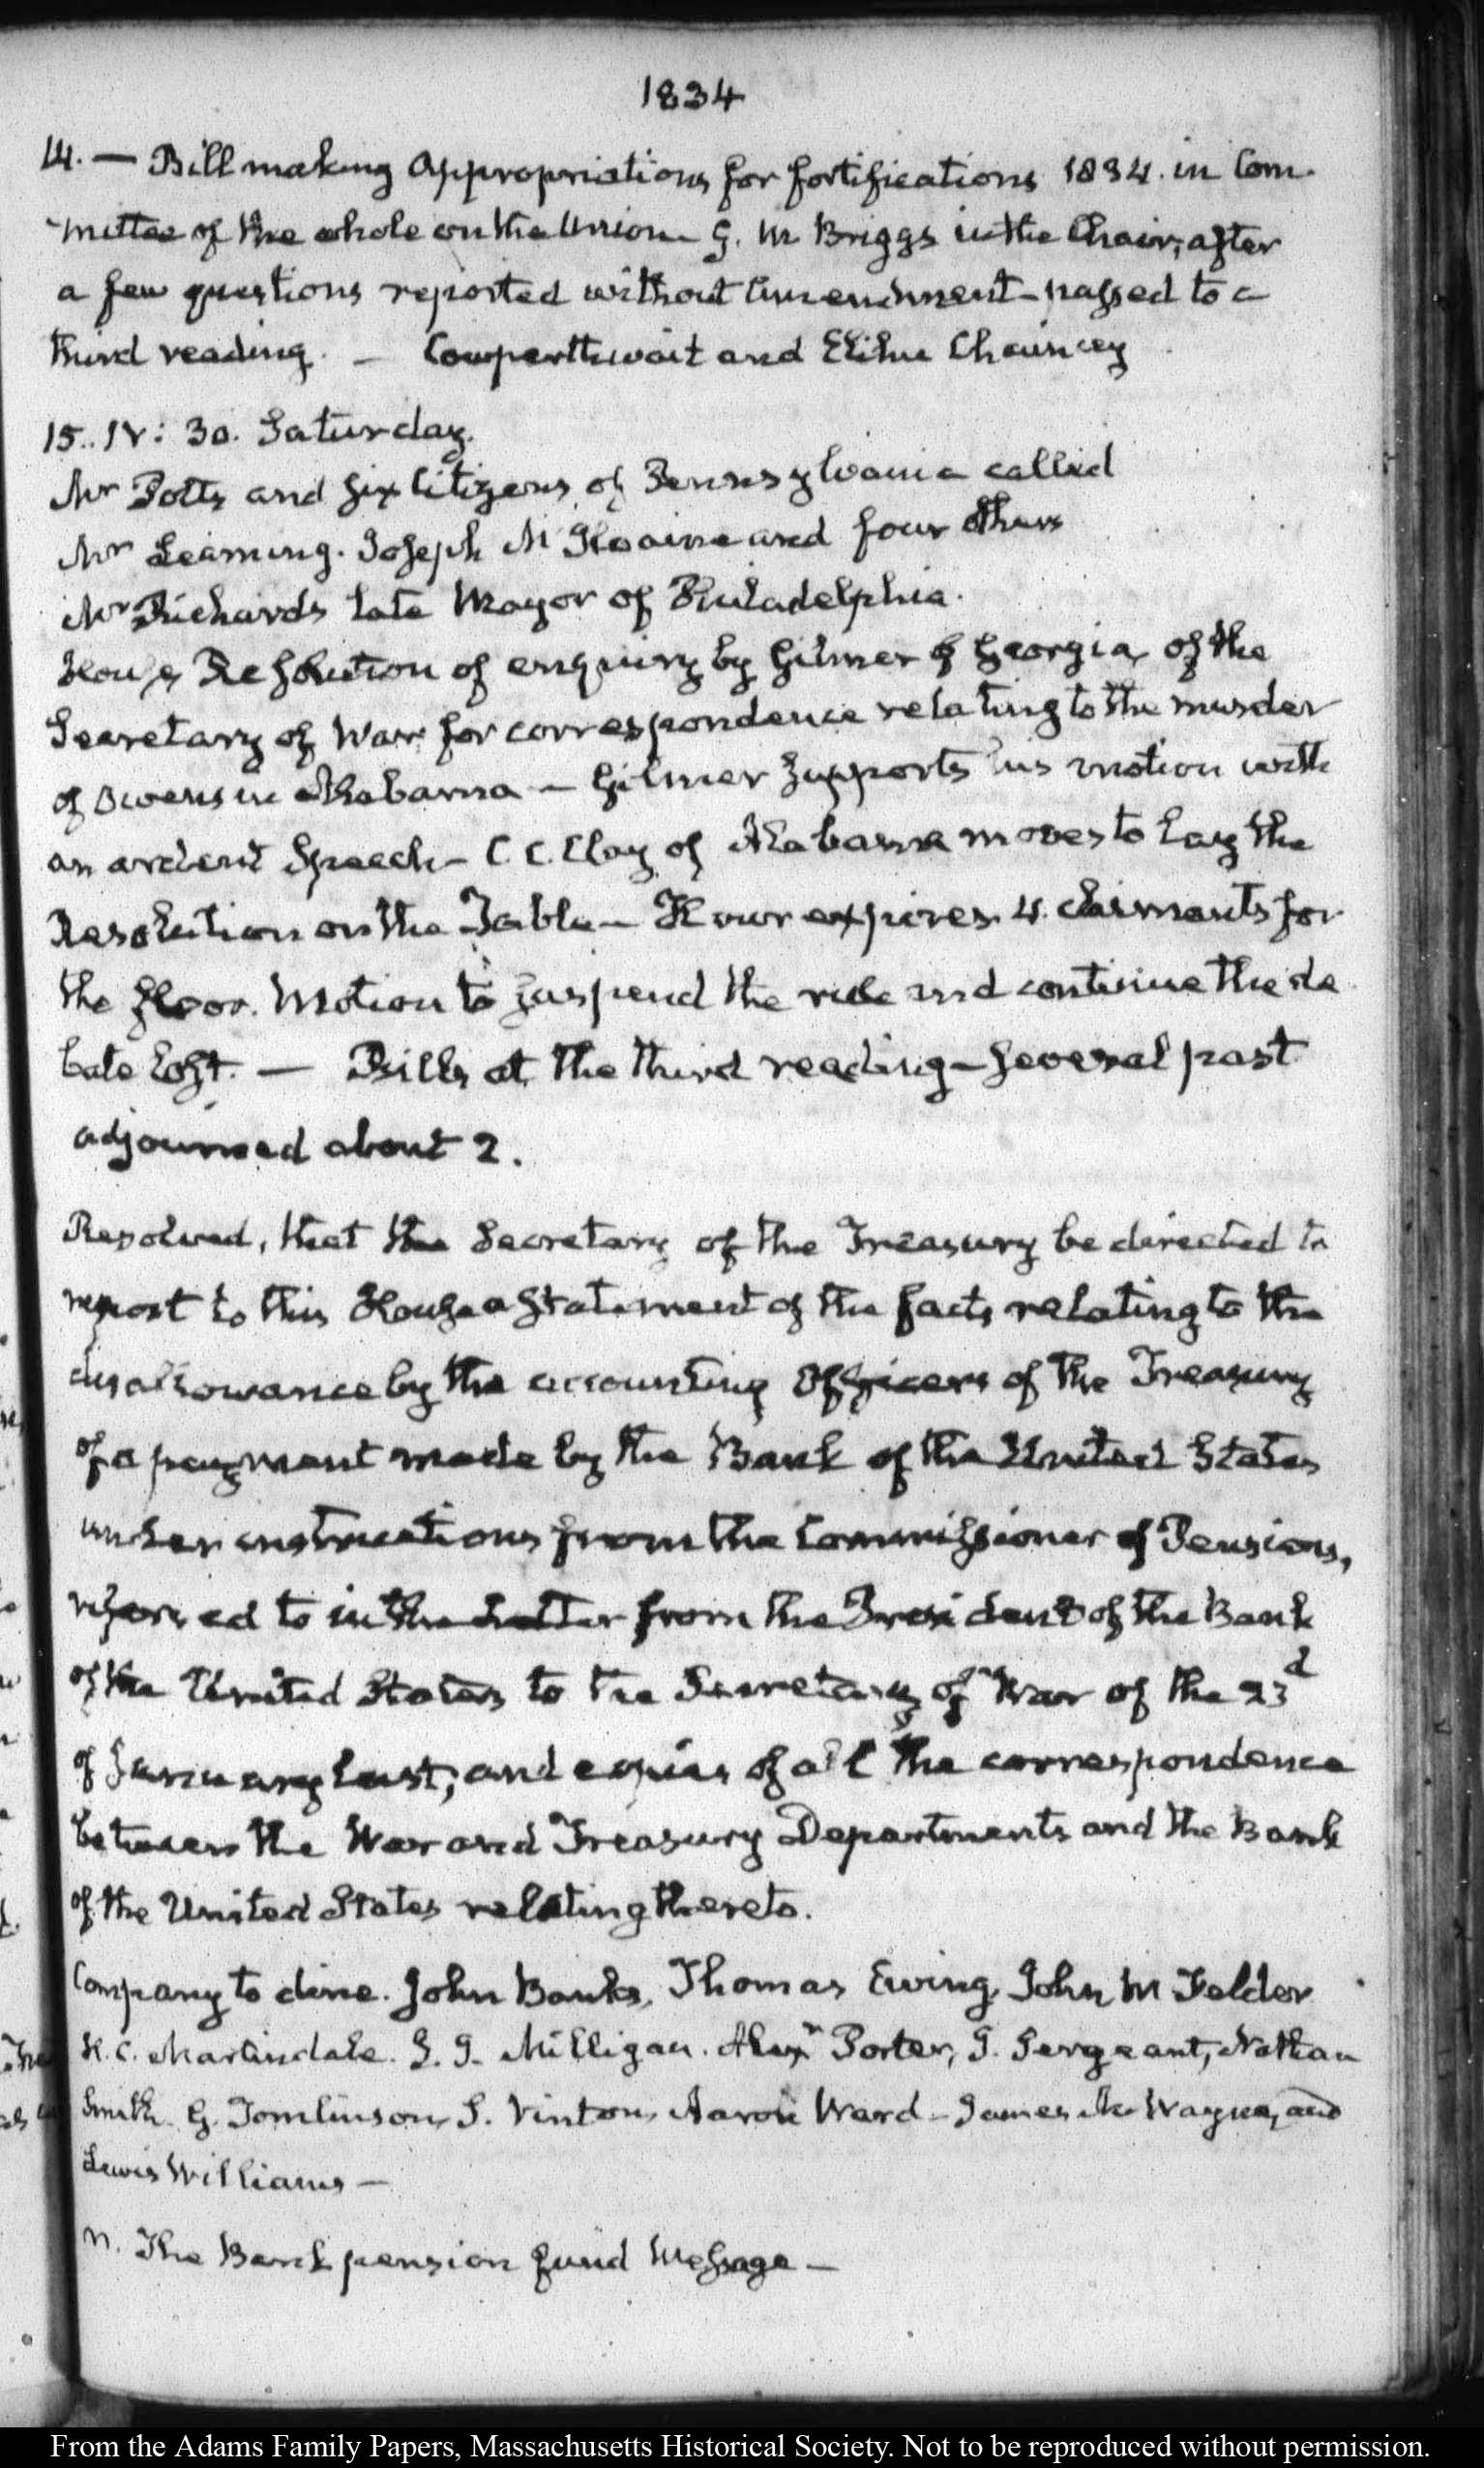 1834
14. — Bill making Appropriations for fortifications 1834. in Com-
mittee of the whole on the Union G. N Briggs in the Chair, after
a few questions reported without Amendment – passed to a
third reading. — Cowperthwait and Elihu Chauncey
15. IV: 30. Saturday.
Mr Potts and six Citizens of Pennsylvania called
Mr Leaming. Joseph McIlvaine and four others
Mr Richards late Mayor of Philadelphia.
House Resolution of enquiry by Gilmer of Georgia, of the
Secretary of War for correspondence relating to the murder
of Owens in Alabama – Gilmer supports his motion with
an ardent Speech – C. C. Clay of Alabama moves to lay the
Resolution on the Table – Hour expires. 4. claimants for
the floor. Motion to suspend the rule and continue the de
bate lost. — Bills at the third reading – several past
adjourned about 2.
Resolved, that the Secretary of the Treasury be directed to
report to this House a Statement of the facts relating to the
disallowance by the accounting Officers of the Treasury
of a payment made by the Bank of the United States
under instructions from the Commissioner of Pensions,
referred to in the Letter from the President of the Bank
of the United States to the Secretary of War of the 23d
of January last; and copies of all the correspondence
between the War and Treasury Departments and the Bank
of the United States relating thereto.
Company to dine. John Banks, Thomas Ewing, John M Felder
H. C. Martindale. J. J. Milligan. Alexr Porter, J. Sergeant, Nathan
Smith. G. Tomlinson, S. Vinton, Aaron Ward – James M Wayne, and
Lewis Williams —
n. The Bank pension fund Message —
From the Adams Family Papers, Massachusetts Historical Society. Not to be reproduced without permission.